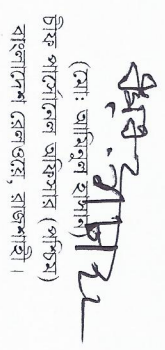 (মোঃ আমিনুল হাসান)
চীফ পার্সোনেল অফিসার (পশ্চিম)
বাংলাদেশ রেলওয়ে, রাজশাহী।